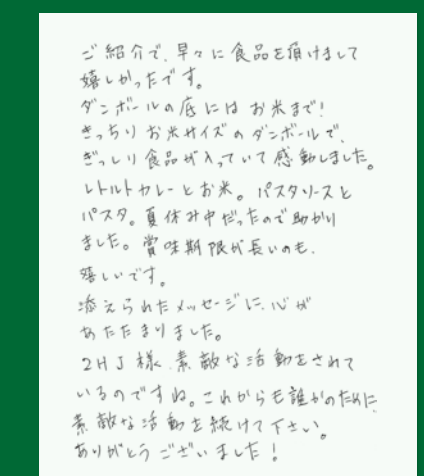 ご紹介で、早々に食品を頂けまして
嬉しかったです。
ダンボールの底にはお米まで!
きっちりお米サイズのダンボールで、
ぎっしり食品が入っていて感動しました。
レトルトカレーとお米。パスタソースと
パスタ。夏休み中だったので助かり
ました。賞味期限が長いのも、
嬉しいです。
添えられたメッセージに、心が
あたたまりました。
2HJ様、素敵な活動をされて
いるのですね。これからも誰かのために
素敵な活動を続けて下さい。
ありがとうございました!